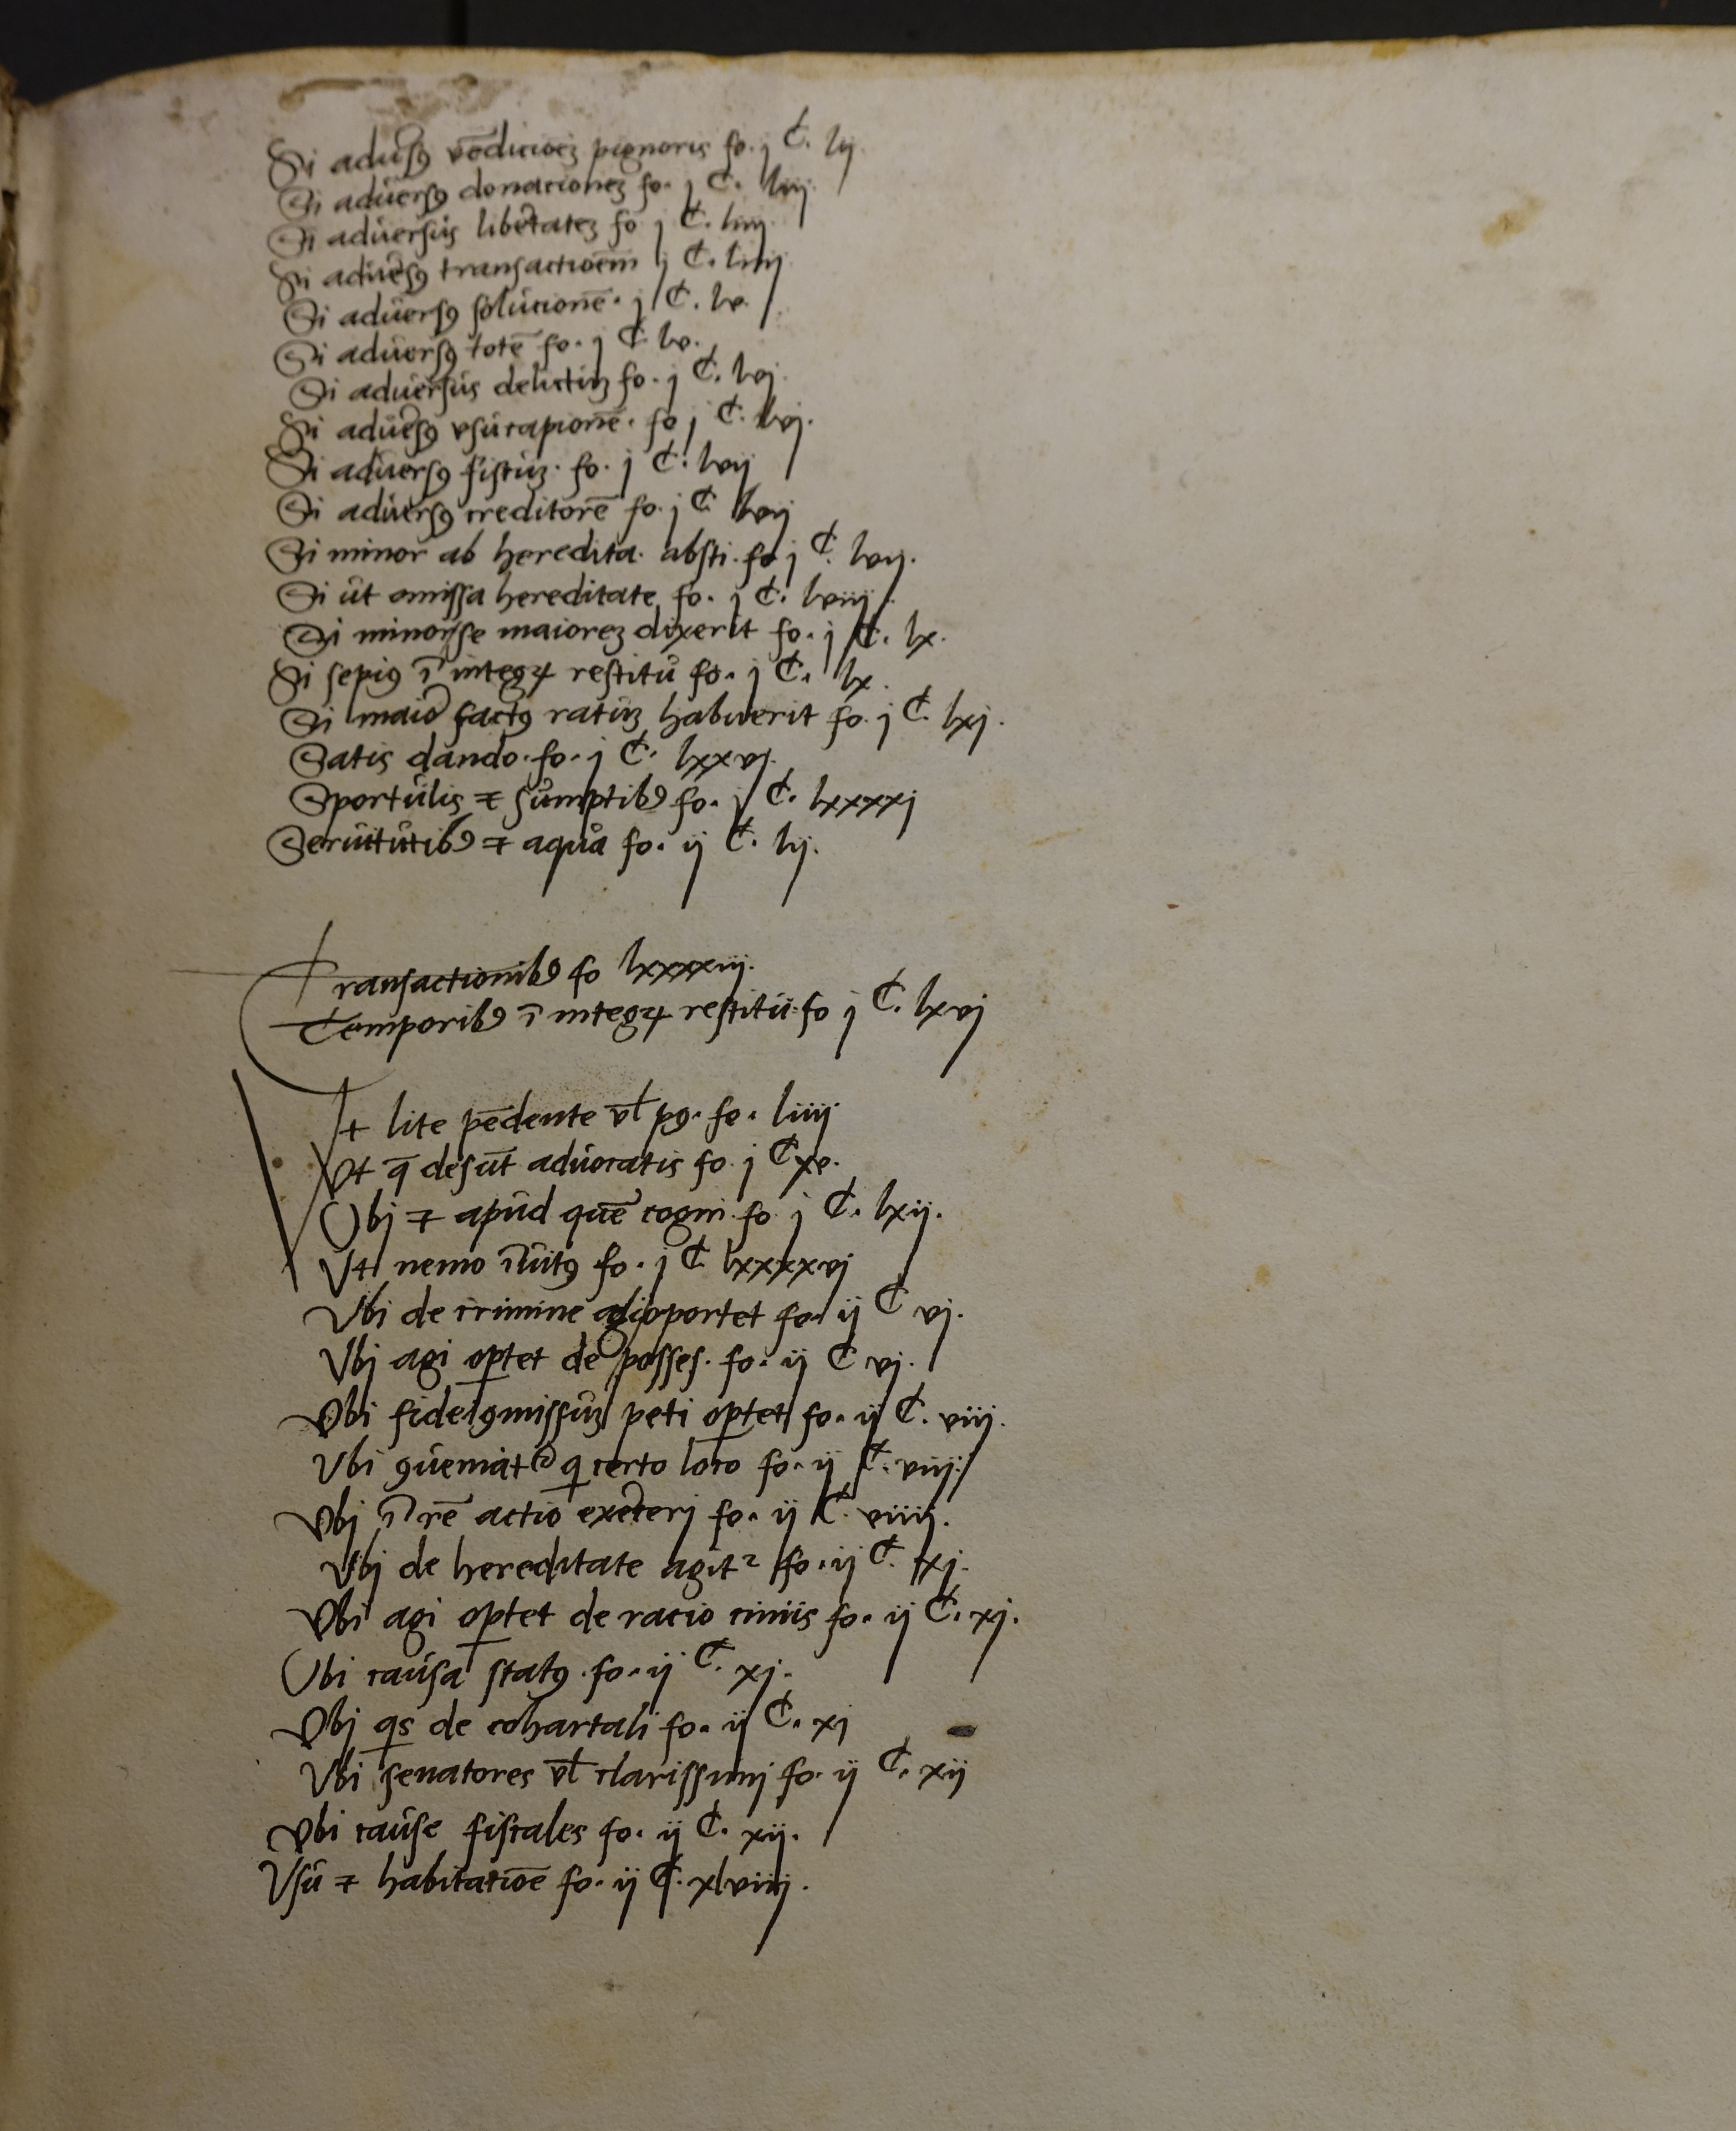 Si aduersꝰ vēdicioēȝ pignoris fo. j C. lij.
Si aduersꝰ donacionēȝ fo. j C. liij.
Si aduersus libertateȝ fo j C. liiij.
Si aduersꝰ transactioēm j C. liiij
Si aduersꝰ solucionē. j C. lv.
Si aduersꝰ totē fo. j C. lv.
Si aduersus delictuȝ fo. j C. lvj.
Si aduersꝰ vsucapionē. fo j C. lvj.
Si aduersꝰ fiscuȝ. fo. j C. lvij
Si aduersꝰ creditorē fo. j C lvij
Si minor ab heredita. absti. fo j C. lvij.
Si ut omissa hereditate fo. j C. lviij.
Si minor se maioreȝ dixerit fo. j C. lx.
Si sepiꝰ ī integꝝ restitu fo. j C. lx.
Si maior factꝰ ratuȝ habuerit fo. j C. lxj.
Satis dando. fo. j C. lxxvj.
Sportulis ⁊ sumptibꝰ fo. j C. lxxxxj
Seruitutibꝰ ⁊ aqua fo. ij C. lij.
Transactionibꝰ fo lxxxxiij.
Temporibꝰ ī integꝝ restitu. fo j C. lxvj
Vt lite pēdente vł pꝰ. fo. liiij
Vt q̄ desūt aduocatis fo. j C xv.
Vbj ⁊ apud quē cogni. fo j C. lxij.
Vt nemo īuitꝰ fo. j C lxxxxvj
Vbi de crimine agi oportet fo. ij C vj.
Vbj agi oꝑtet de posses. fo. ij C vj.
Vbi fideiꝯmissuȝ peti oꝑtet fo. ij C. viij.
Vbi ꝯueniat² q̇ certo loco fo. ij C. viij.
Vbj ī rē actio exerceri fo. ij C. viiij.
Vbj de hereditate agit² fo. ij C. xj.
Vbi agi oꝑtet de racio ciniis fo. ij C. xj.
Vbi causa statꝰ. fo. ij C. xj.
Vbj qs de cohartali fo. ij C. xj
Vbi senatores vł clarissimj fo. ij C. xij
Vbi cause fiscales fo. ij C. xij.
Vsu ⁊ habitatioē fo. ij C. xlviiij.